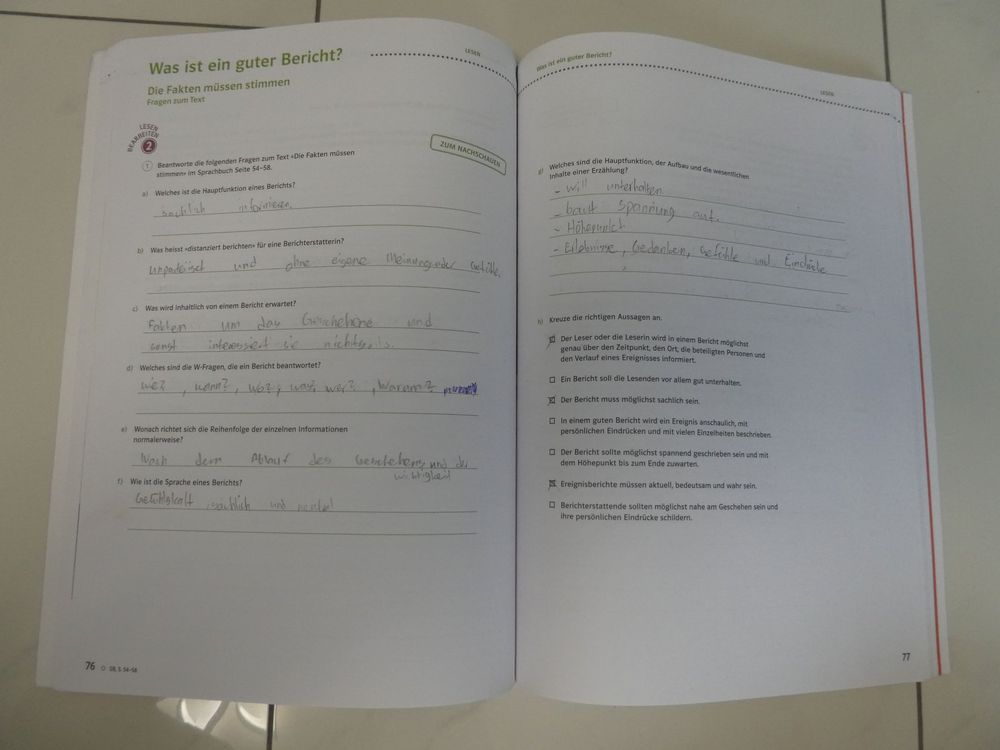 LESEN
Was ist ein guter Bericht?
Die Fakten müssen stimmen
Fragen zum Text
LESEN
BEARBEITEN
2
ZUM NACHSCHAUEN
1 Beantworte die folgenden Fragen zum Text «Die Fakten müssen
stimmen» im Sprachbuch Seite 54–58.
a) Welches ist die Hauptfunktion eines Berichts?
sachlich informieren.
b) Was heisst «distanziert berichten» für eine Berichterstatterin?
unparteiisch und ohne eigene Meinung oder Gefühle.
c) Was wird inhaltlich von einem Bericht erwartet?
Fakten um das Geschehene und
sonst interessiert sie nichts
d) Welches sind die W-Fragen, die ein Bericht beantwortet?
wie?, wann?, wo?, was?, wer?, Warum?
e) Wonach richtet sich die Reihenfolge der einzelnen Informationen
normalerweise?
Nach dem Ablauf des Geschehens und der
wichtigkeit
f) Wie ist die Sprache eines Berichts?
sachlich und
76 SB, S. 54–58
Was ist ein guter Bericht?
LESEN
g) Welches sind die Hauptfunktion, der Aufbau und die wesentlichen
Inhalte einer Erzählung?
- will unterhalten
- baut Spannung auf.
- Höhepunkt
- Erlebnisse, Gedanken, Gefühle und
h) Kreuze die richtigen Aussagen an.
Der Leser oder die Leserin wird in einem Bericht möglichst
genau über den Zeitpunkt, den Ort, die beteiligten Personen und
den Verlauf eines Ereignisses informiert.
Ein Bericht soll die Lesenden vor allem gut unterhalten.
Der Bericht muss möglichst sachlich sein.
In einem guten Bericht wird ein Ereignis anschaulich, mit
persönlichen Eindrücken und mit vielen Einzelheiten beschrieben.
Der Bericht sollte möglichst spannend geschrieben sein und mit
dem Höhepunkt bis zum Ende zuwarten.
Ereignisberichte müssen aktuell, bedeutsam und wahr sein.
Berichterstattende sollten möglichst nahe am Geschehen sein und
ihre persönlichen Eindrücke schildern.
77